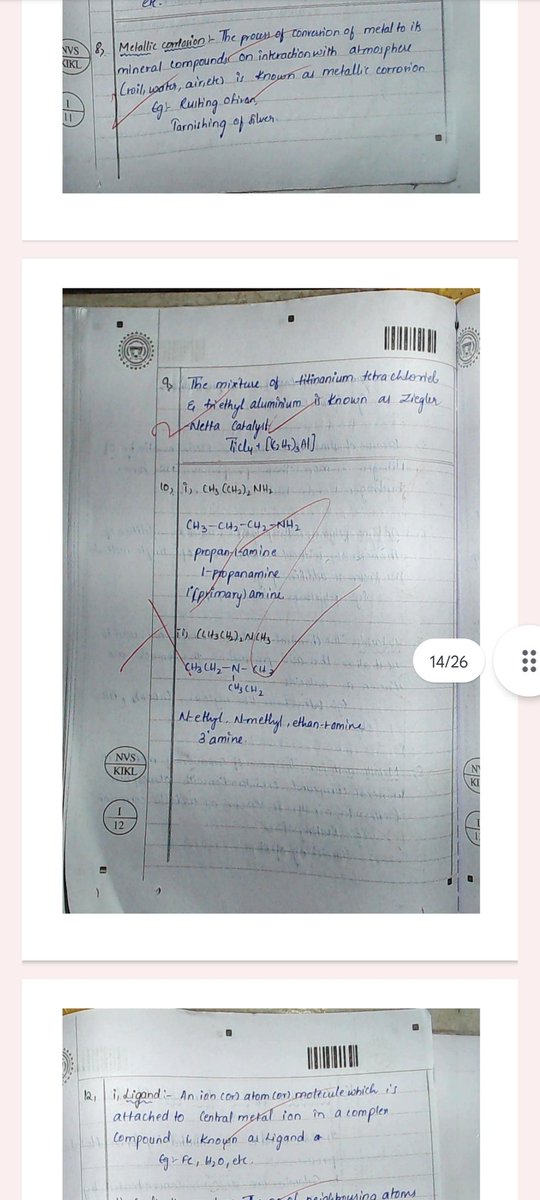 etc.
NVS
KIKL
8, Metallic corrosion :- The process of conversion of metal to its
mineral compounds on interaction with atmosphere
(soil, water, air, etc) is known as metallic corrosion
Eg:- Rusting of iron,
Tarnishing of silver.
I
11
9, The mixture of titinanium tetrachloried
& triethyl aluminium is known as Ziegler
Natta Catalyst
TiCl4 + [(C2H5)3Al]
10, i), CH3(CH2)2NH2
CH3-CH2-CH2-NH2
propan-1-amine
1-propanamine
1°(primary) amine
ii) (CH3CH2)2NCH3
CH3CH2-N-CH3
CH3CH2
N-ethyl, N-methyl, ethan-1-amine
3° amine.
14/26
NVS
KIKL
I
12
12, i, Ligand :- An ion (or) atom (or) molecule which is
attached to central metal ion in a complex
compound is known as Ligand
Eg:- H2O, etc.
of neighbouring atoms